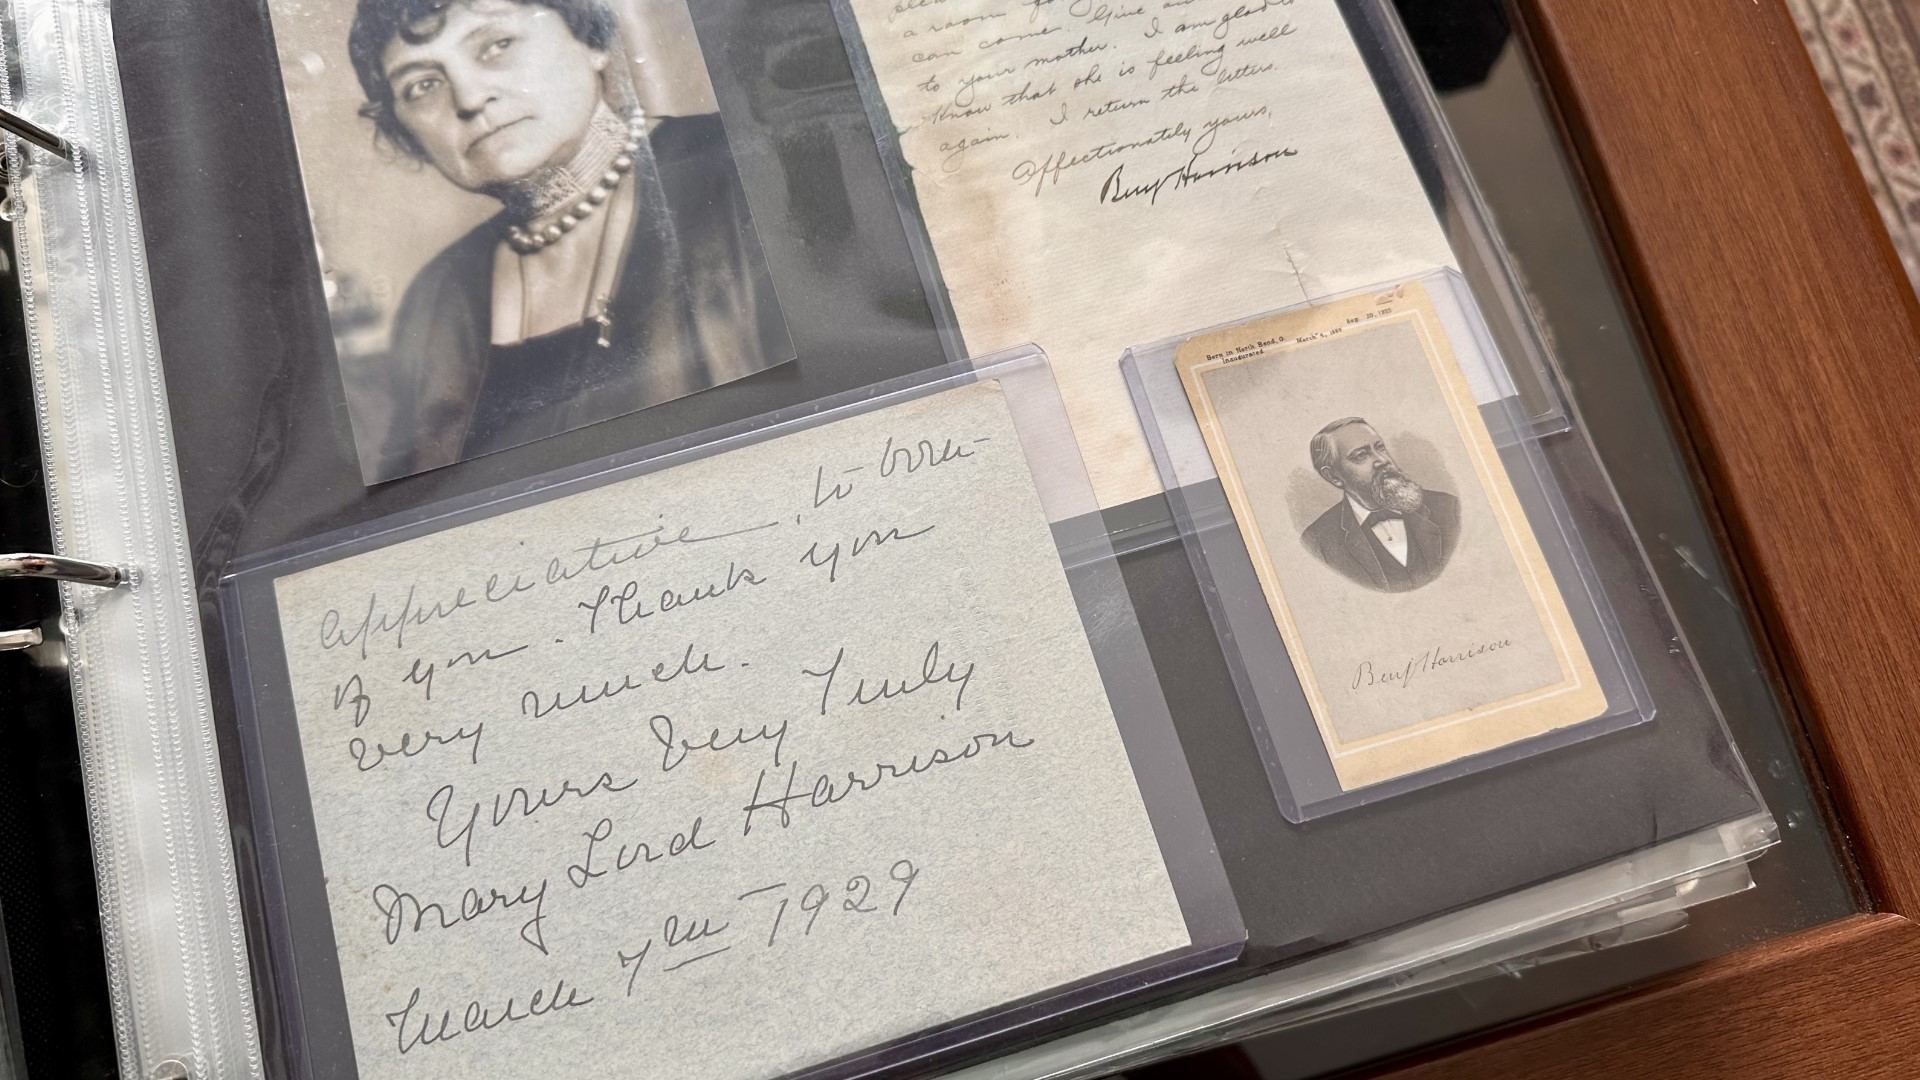 a room for
can come. Give
to your mother. I am glad to
know that she is feeling well
again. I return the letters.
Affectionately yours,
Benj Harrison
Born in North Bend, O. Aug. 20, 1833
Inaugurated March 4, 1889
Benj Harrison
appreciative, to
of you. Thank you
very much.
Yours Very Truly
Mary Lord Harrison
March 7th 1929